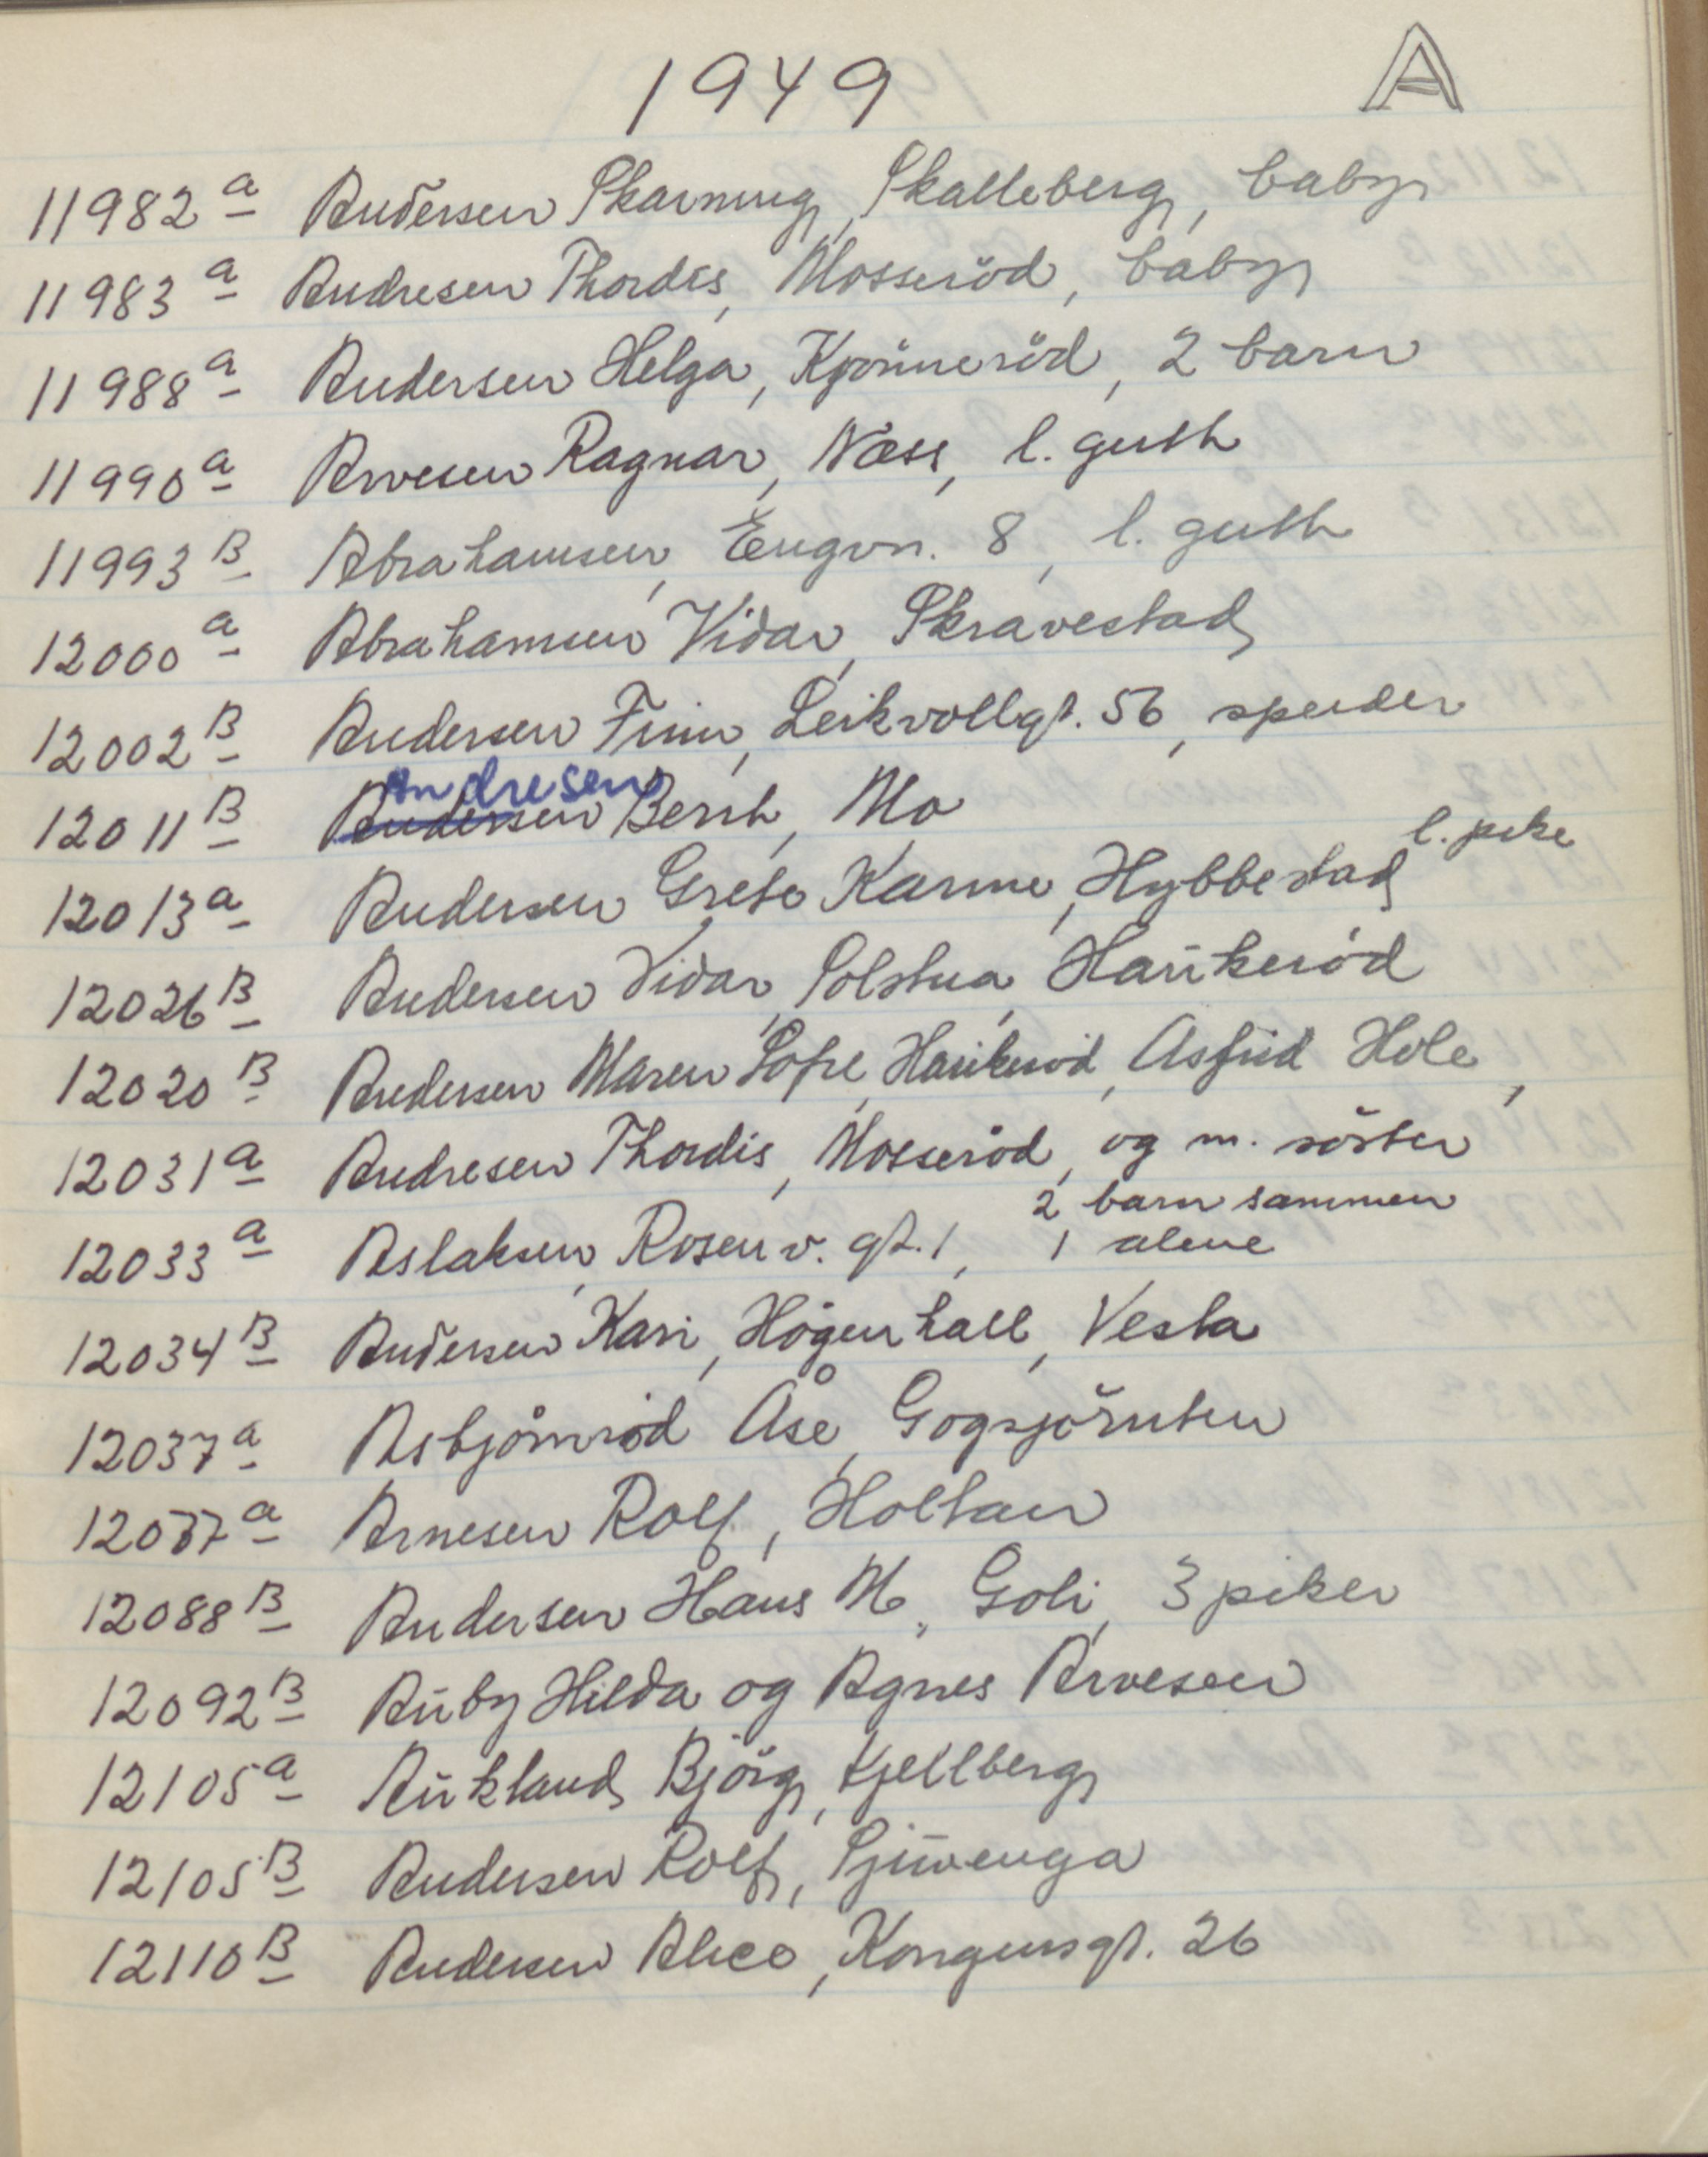 1949 A
11982 a Andersen Skarning, Skalleberg, baby
11983 a Andresen Thordis, Mosseröd, baby
11988 a Andersen Helga, Kjönneröd, 2 barn
11990 a Arvesen Ragnar, Næss, l. gutt
11993 B Abrahamsen, Engvn. 8, l. gutt
12000 a Abrahamsen Vidar, Skravestad
12002 B Andersen Finn, Leikvollgt. 56, speider
Andresen
12011 B Andersen Bernh, Mo
l. pike
12013 a Andersen Grete Karine, Hybbestad
12026 B Andersen Vidar, Solstua, Haukeröd
12020 B Andersen Maren Sofie, Haukeröd, Asfrid Hole,
12031 a Andresen Thordis, Mosseröd, og m. söster
2 barn sammen
12033 a Aslaksen, Rosenv. gt. 1, 1 alene
12034 B Andersen Kari, Högenhall, Vesta
12037 a Asbjörnröd Åse, Gogsjöruten
12077 a Arnesen Rolf, Holtan
12088 B Andersen Hans M, Goli, 3 piker
12092 B Auby Hilda og Agnes Arvesen
12105 a Aukland Björg, Kjellberg
12105 B Andersen Rolf, Sjuvenga
12110 B Andersen Alice, Kongensgt. 26